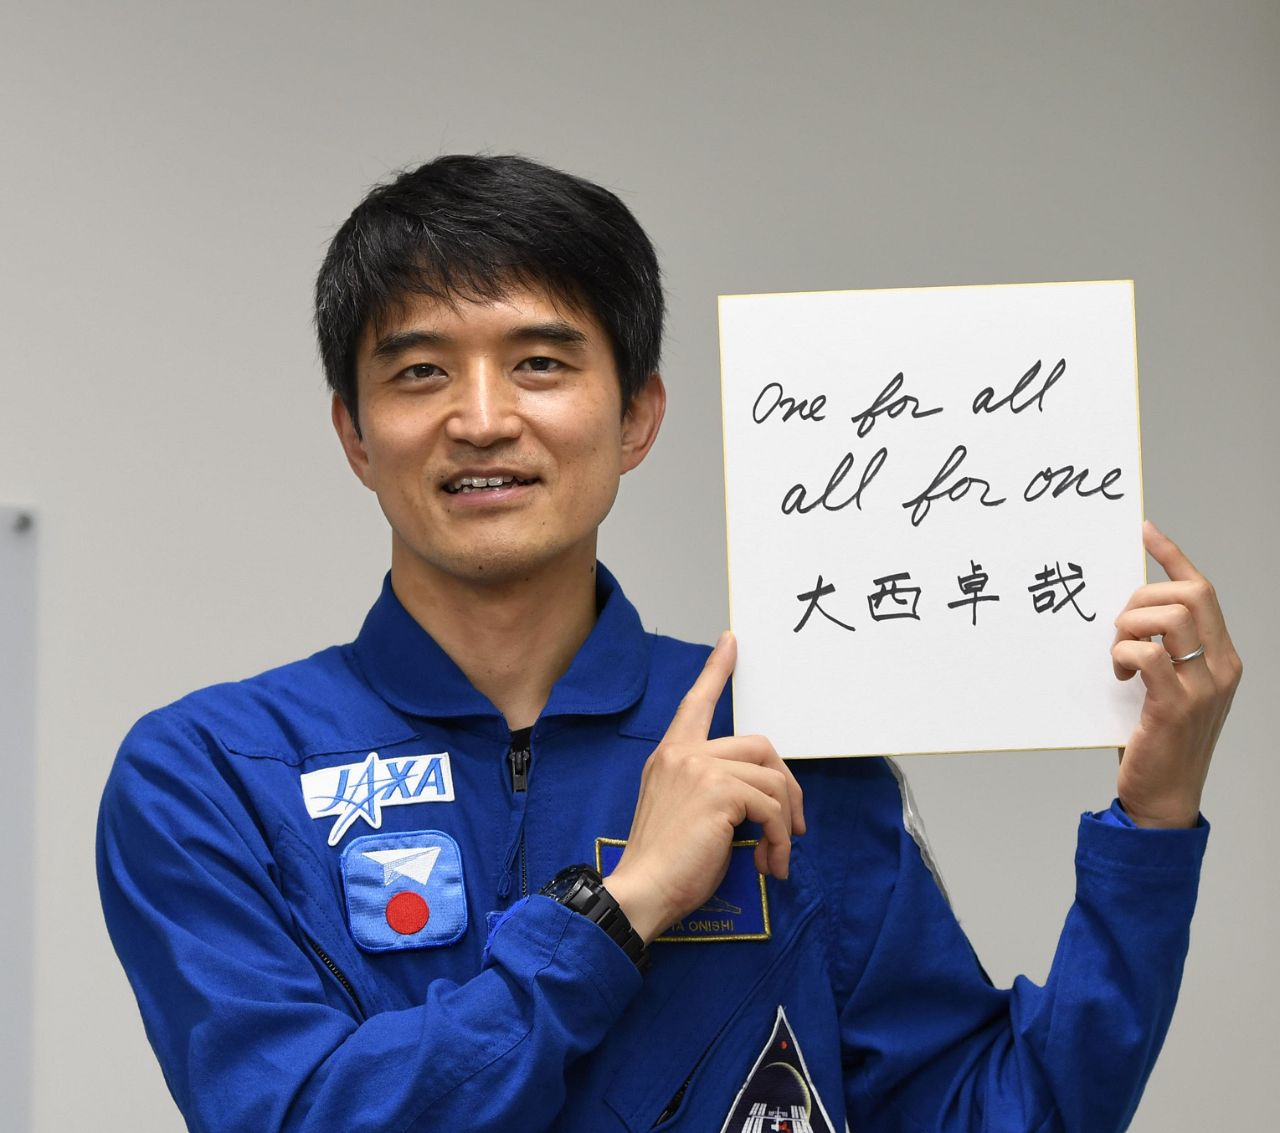 One for all
all for one
大西卓哉
JAXA
ONISHI